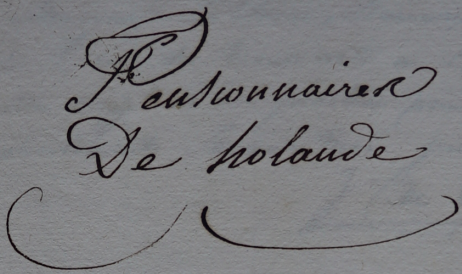 Pensionnaires
De holande